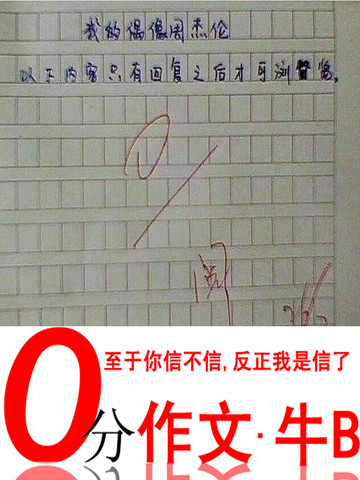 我的偶像周杰伦
以下内容只有回复之后才可浏览。
0
阅
至于你信不信,反正我是信了
0分作文·牛B